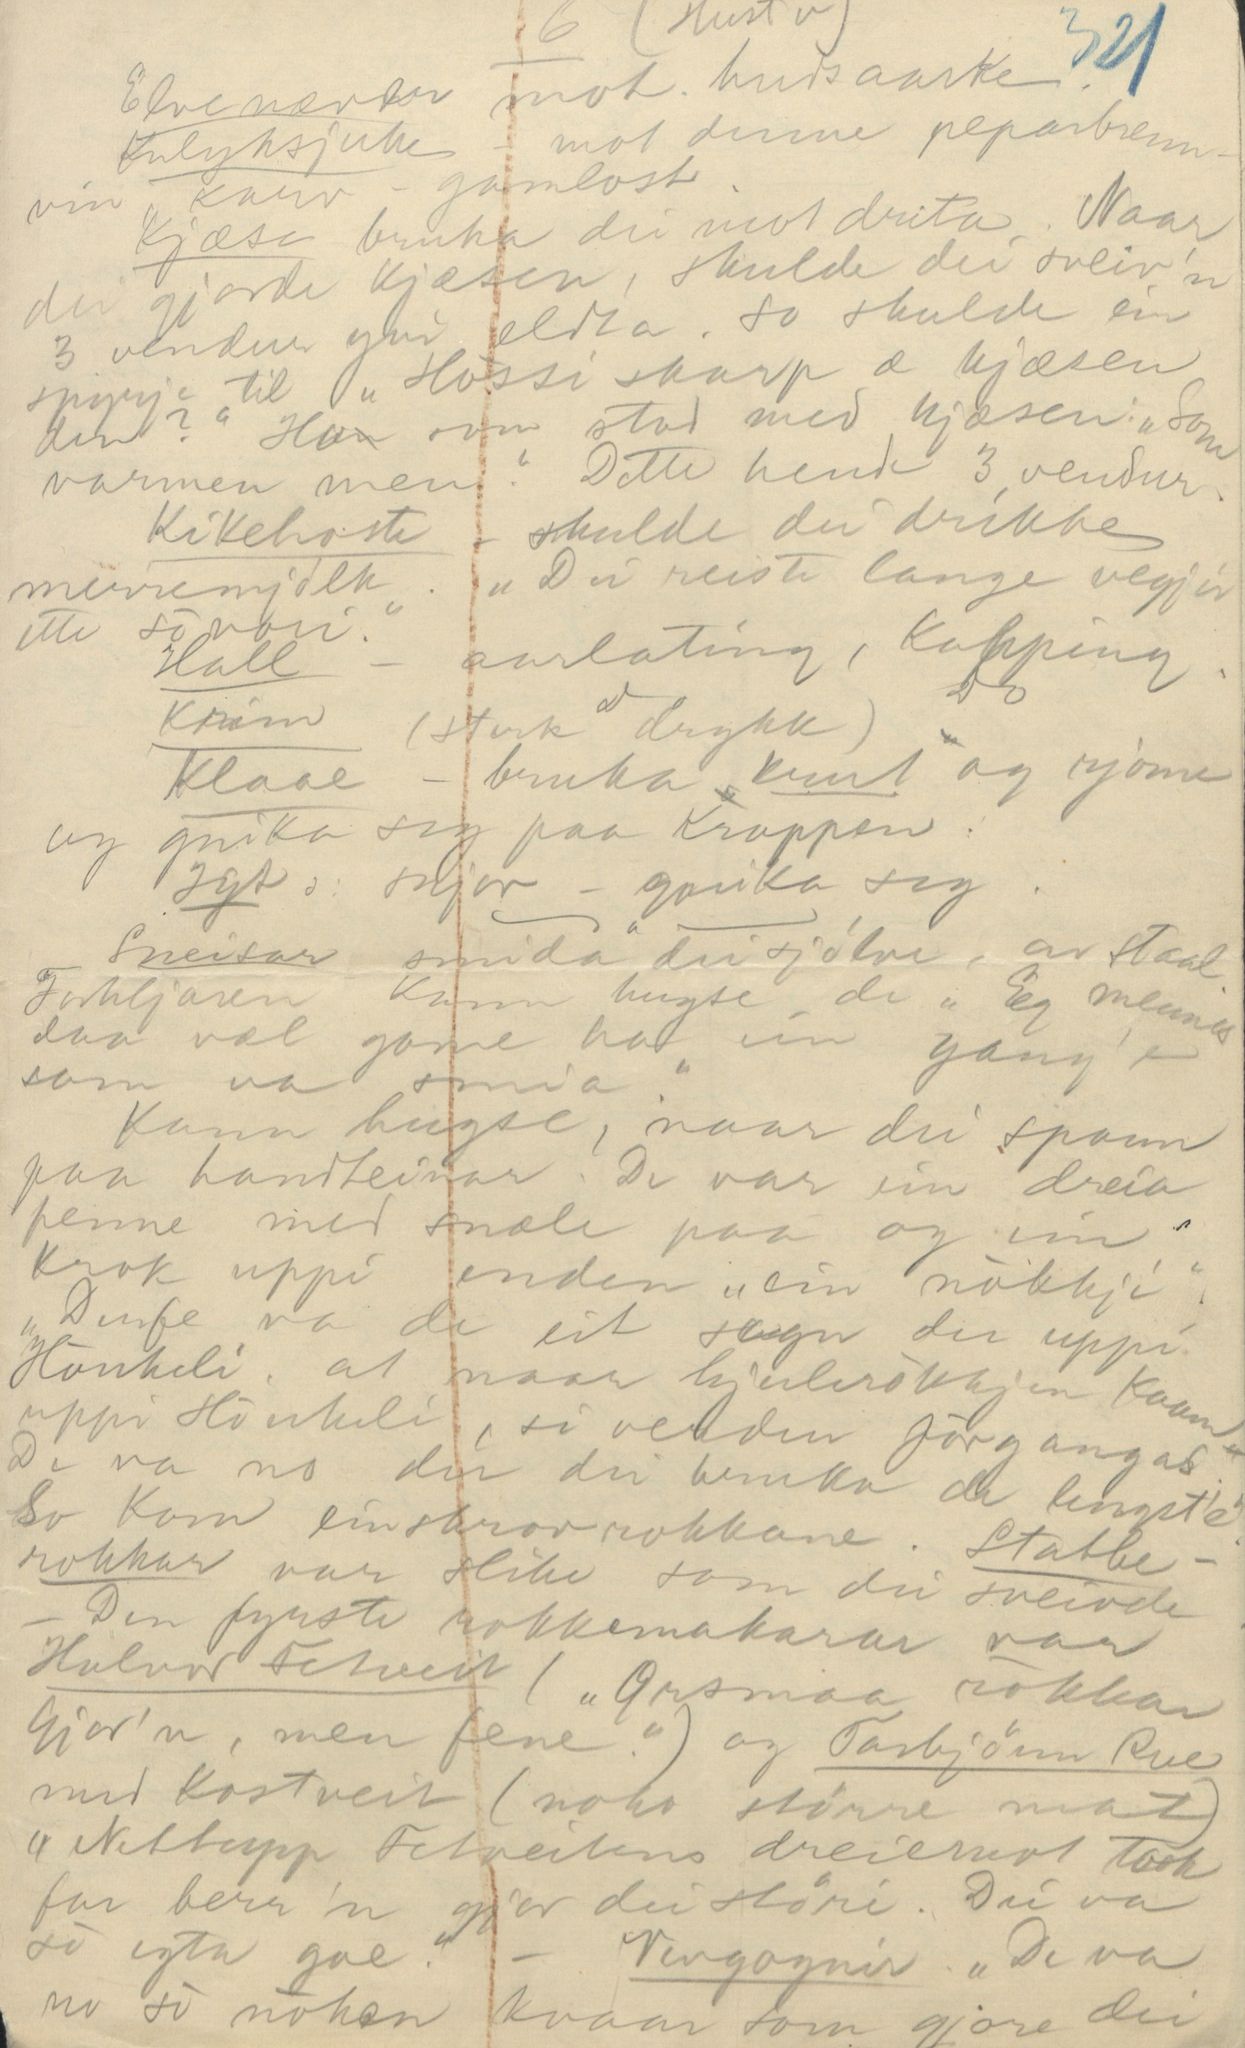 6 (Hust v) 321
Elvenæver mot. hudsaarke.
Kulyksjuke - mot denne peparbrenn-
vin, karv - gamlost.
Kjæse bruka dei mot drita. Naar
dei gjorde kjæsen, skulde dei sveiv'n
3 vendur yvi eldta. So skulde ein
spyrje til "Hossi skarp æ kjæsen
din?" Han som stod med kjæsen: "Som
varmen men." Dette hende 3 vendur.
Kikehoste - skulde dei drikke
merremjölk. "Dei reiste lange vegjir
ette so vori."
Hall - aarlating, kopping.
Krim (sterk drykk) Do
Klaae - bruka "krut" og rjome
og gnika seg paa kroppen.
Igt: snjor - gnika seg.
Sneisar smida dei sjölve, av staal.
Forteljaren kann hugse de "Eg meiner
daa væl game ha ein gang'e
som va smia."
Kann hugse, naar dei spann
paa handteinar. De var ein dreia
penne med snælle paa og ein
krok uppi enden "ein nökkji".
"Dufe va de eit sogn der uppi
Hönkeli, at naar hjulrökkjen kaam
uppi Hönkeli, si verden förgangas."
De va no der dei bruka de lengst'e.
So kom einskrovrokkane. Stabbe-
rokkar var slike som dei sveivde
- Den fyrste rokkemakarar var
Halvor Tetveit ("Örsmaa rokkar
gjor'n, men fene.") og Torbjönn Rue
med Kostveit (noko större mat)
"Nettupp Tetveitens dreierivot took
far berr'n gjor dei störi. Dei va
so ugta goe." - Vevgognir. "De va
no so noken kvaar som gjore dei